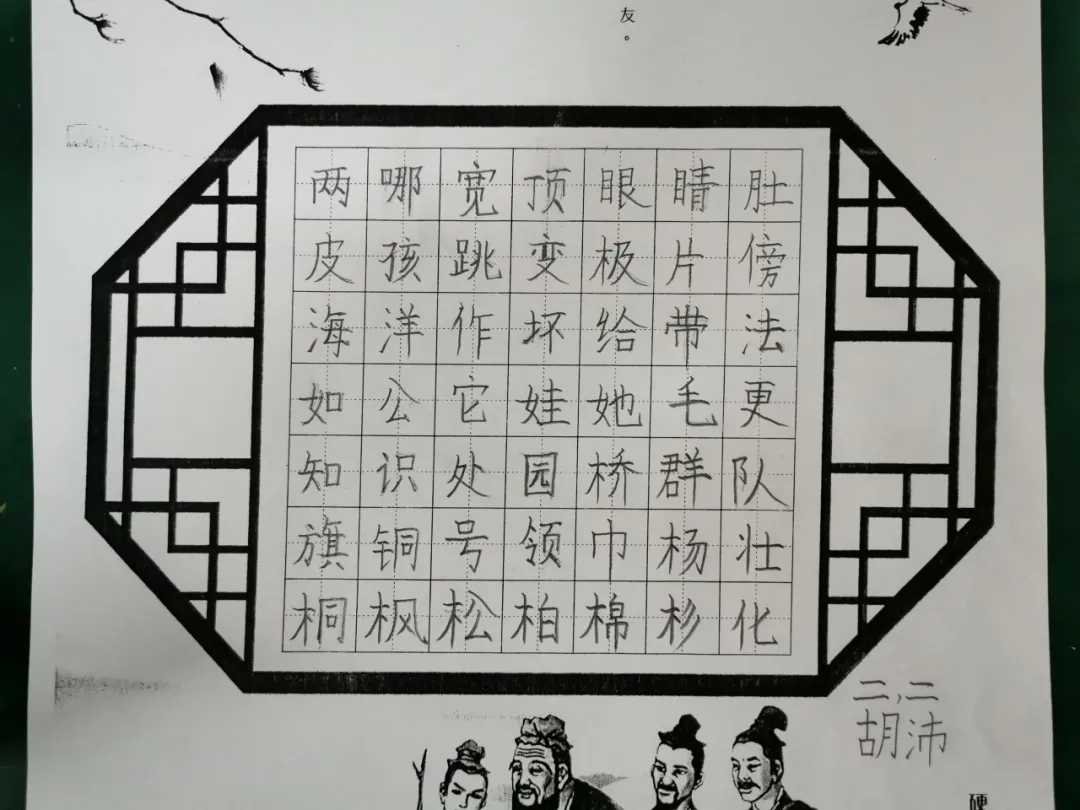 友。
两哪宽顶眼睛肚
皮孩跳变极片傍
海洋作坏给带法
如公它娃她毛更
知识处园桥群队
旗铜号领巾杨壮
桐枫松柏棉杉化
二,二
胡沛
硬